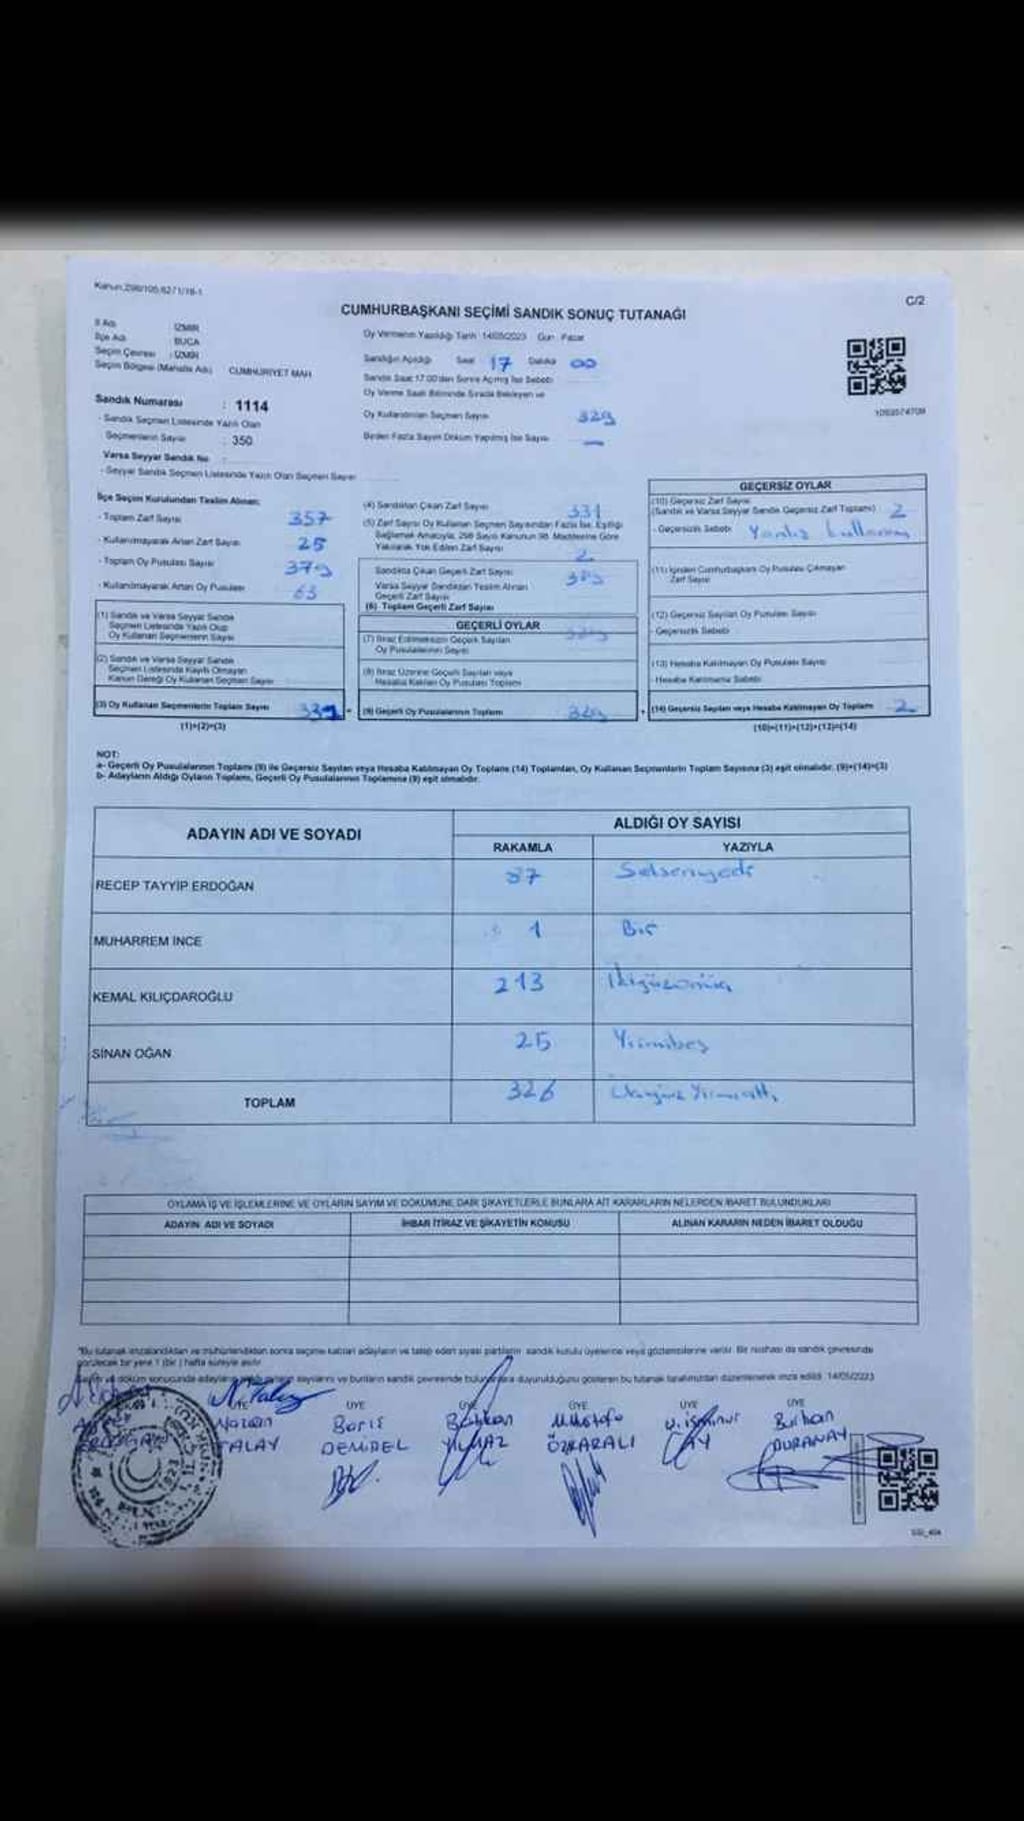 Kanun:298/105;6271/18-1
C/2
CUMHURBAŞKANI SEÇİMİ SANDIK SONUÇ TUTANAĞI
İl Adı : İZMİR
İlçe Adı : BUCA
Seçim Çevresi : İZMİR
Seçim Bölgesi (Mahalle Adı) CUMHURİYET MAH
Sandık Numarası : 1114
- Sandık Seçmen Listesinde Yazılı Olan
Seçmenlerin Sayısı : 350
Varsa Seyyar Sandık No :
- Seyyar Sandık Seçmen Listesinde Yazılı Olan Seçmen Sayısı
Oy Vermenin Yapıldığı Tarih 14/05/2023 Gün : Pazar
Sandığın Açıldığı Saat 17 Dakika 00
Sandık Saat 17.00'dan Sonra Açılmış İse Sebebi
Oy Verme Saati Bitiminde Sırada Bekleyen ve
Oy Kullandırılan Seçmen Sayısı 329
Birden Fazla Sayım Döküm Yapılmış İse Sayısı —
İlçe Seçim Kurulundan Teslim Alınan:
- Toplam Zarf Sayısı 357
- Kullanılmayarak Artan Zarf Sayısı 25
- Toplam Oy Pusulası Sayısı 379
- Kullanılmayarak Artan Oy Pusulası 63
(1) Sandık ve Varsa Seyyar Sandık
Seçmen Listesinde Yazılı Olup
Oy Kullanan Seçmenlerin Sayısı
(2) Sandık ve Varsa Seyyar Sandık
Seçmen Listesinde Kayıtlı Olmayan
Kanun Gereği Oy Kullanan Seçmen Sayısı
(3) Oy Kullanan Seçmenlerin Toplam Sayısı
(1)+(2)=(3)
(4) Sandıktan Çıkan Zarf Sayısı 331
(5) Zarf Sayısı Oy Kullanan Seçmen Sayısından Fazla İse, Eşitliği
Sağlamak Amacıyla, 298 Sayılı Kanunun 98. Maddesine Göre
Yakılarak Yok Edilen Zarf Sayısı 2
Sandıkta Çıkan Geçerli Zarf Sayısı
Varsa Seyyar Sandıktan Teslim Alınan
Geçerli Zarf Sayısı
(6) Toplam Geçerli Zarf Sayısı
GEÇERLİ OYLAR
(7) İtiraz Edilmeksizin Geçerli Sayılan
Oy Pusulalarının Sayısı
(8) İtiraz Üzerine Geçerli Sayılan veya
Hesaba Katılan Oy Pusulası Toplamı
(9) Geçerli Oy Pusulalarının Toplamı 329
GEÇERSİZ OYLAR
(10) Geçersiz Zarf Sayısı
(Sandık ve Varsa Seyyar Sandık Geçersiz Zarf Toplamı) 2
- Geçersizlik Sebebi
(11) İçinden Cumhurbaşkanı Oy Pusulası Çıkmayan
Zarf Sayısı
(12) Geçersiz Sayılan Oy Pusulası Sayısı
- Geçersizlik Sebebi
(13) Hesaba Katılmayan Oy Pusulası Sayısı
- Hesaba Katılmama Sebebi
(14) Geçersiz Sayılan veya Hesaba Katılmayan Oy Toplamı 2
(10)+(11)+(12)+(13)=(14)
NOT:
a- Geçerli Oy Pusulalarının Toplamı (9) ile Geçersiz Sayılan veya Hesaba Katılmayan Oy Toplamı (14) Toplamları, Oy Kullanan Seçmenlerin Toplam Sayısına (3) eşit olmalıdır. (9)+(14)=(3)
b- Adayların Aldığı Oyların Toplamı, Geçerli Oy Pusulalarının Toplamına (9) eşit olmalıdır.
ADAYIN ADI VE SOYADI ALDIĞI OY SAYISI
RAKAMLA YAZIYLA
RECEP TAYYİP ERDOĞAN 87 Seksenyedi
MUHARREM İNCE 1 Bir
KEMAL KILIÇDAROĞLU 213 İkiyüzonüç
SİNAN OĞAN 25 Yirmibeş
TOPLAM 326 Üçyüz Yirmialtı
OYLAMA İŞ VE İŞLEMLERİNE VE OYLARIN SAYIM VE DÖKÜMÜNE DAİR ŞİKAYETLERLE BUNLARA AİT KARARLARIN NELERDEN İBARET BULUNDUKLARI
ADAYIN ADI VE SOYADI İHBAR İTİRAZ VE ŞİKAYETİN KONUSU ALINAN KARARIN NEDEN İBARET OLDUĞU
"Bu tutanak imzalandıktan ve mühürlendikten sonra seçime katılan adayların ve talep eden siyasi partilerin sandık kurulu üyelerine veya gözlemcilerine verilir. Bir nüshası da sandık çevresinde
görülecek bir yere 1 (bir) hafta süreyle asılır.
14/05/2023
ÜYE ÜYE ÜYE ÜYE ÜYE ÜYE
Nazan Barış Batıkan Mustafa Burhan
TALAY DEMİREL YILMAZ ÖZKARALI ÇAY DURANAY